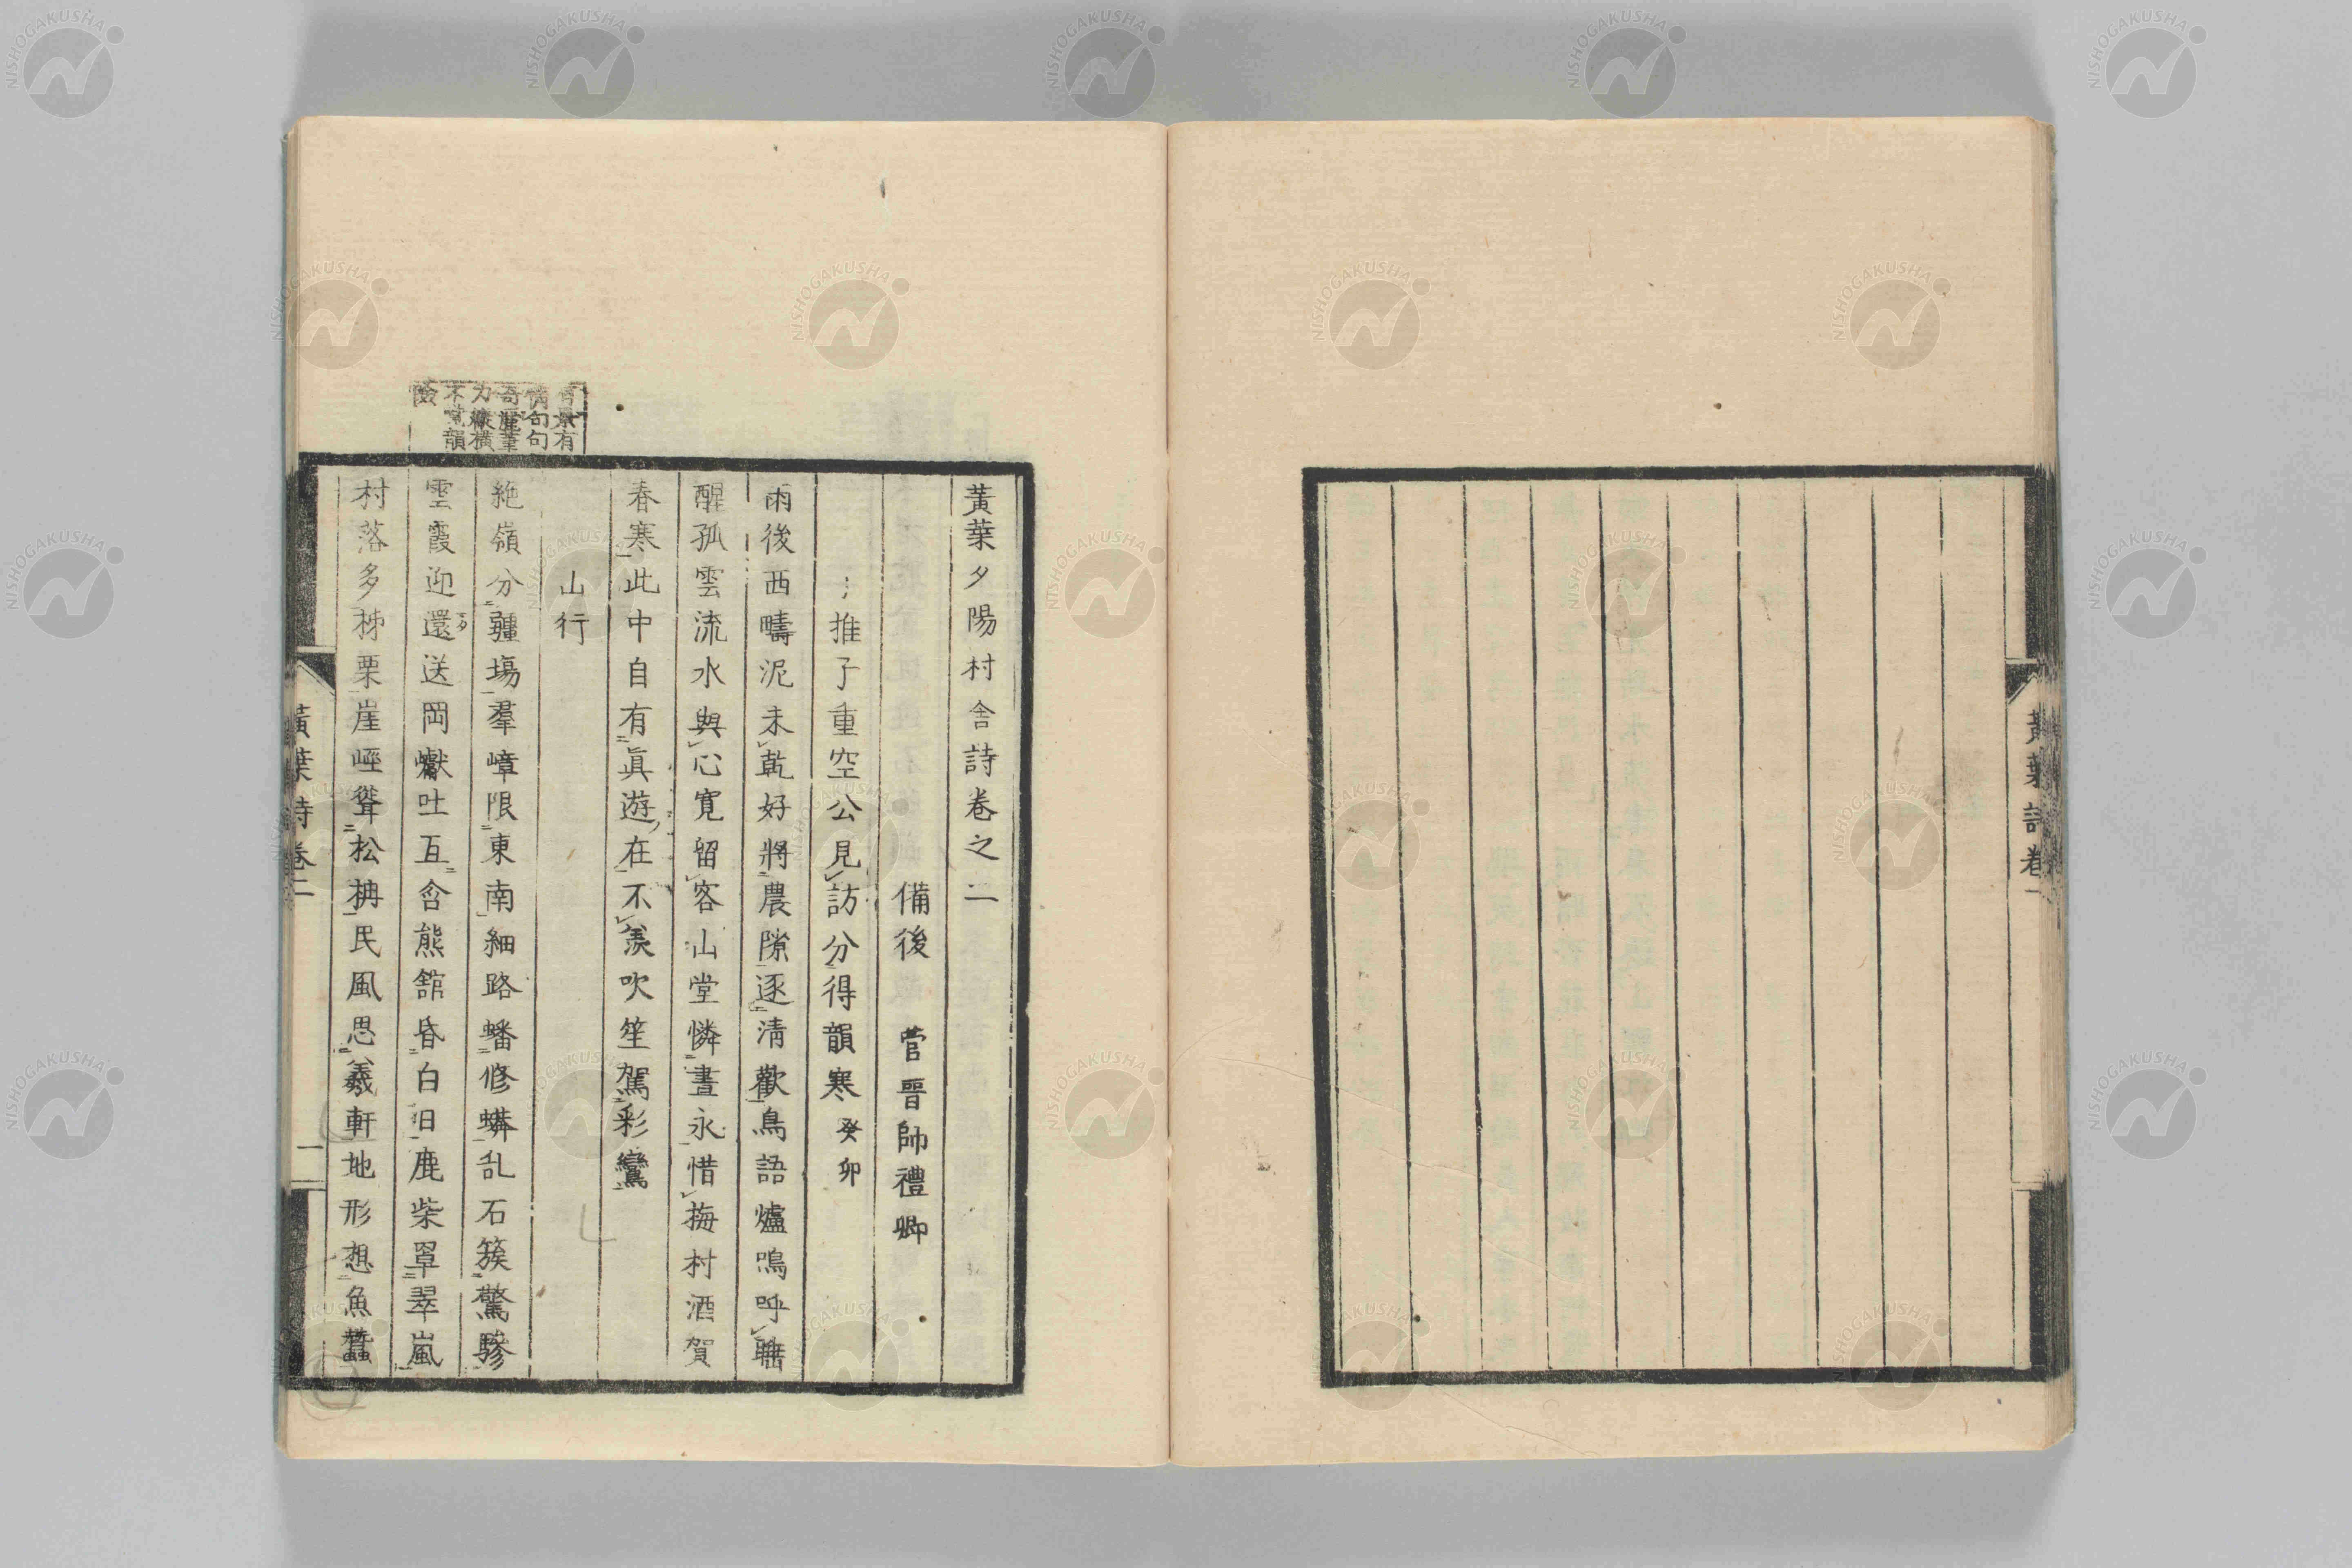 黃葉詩卷一
黃葉夕陽村舍詩卷之二
備後 菅晋帥禮卿
推子重空公見訪分得韻寒 癸卯
雨後西疇泥未乾好將農隙逐淸歡鳥語爐鳴呼
醒孤雲流水與心寬留客山堂憐晝永惜梅村酒賀
春寒此中自有眞遊在不羨吹笙駕彩鸞
山行
絶嶺分疆場羣嶂限東南細路蟠修蟒乱石簇驚驂
雲霞迎還送岡巘吐互含熊舘昏白日鹿柴罩翠嵐
村落多栜栗崖峌聳松枏民風思羲軒地形想魚蠶
有景有
情句句
奇麗筆
力縱橫
不覺韻
險
黃葉詩卷二
一
NISHOGAKUSHA